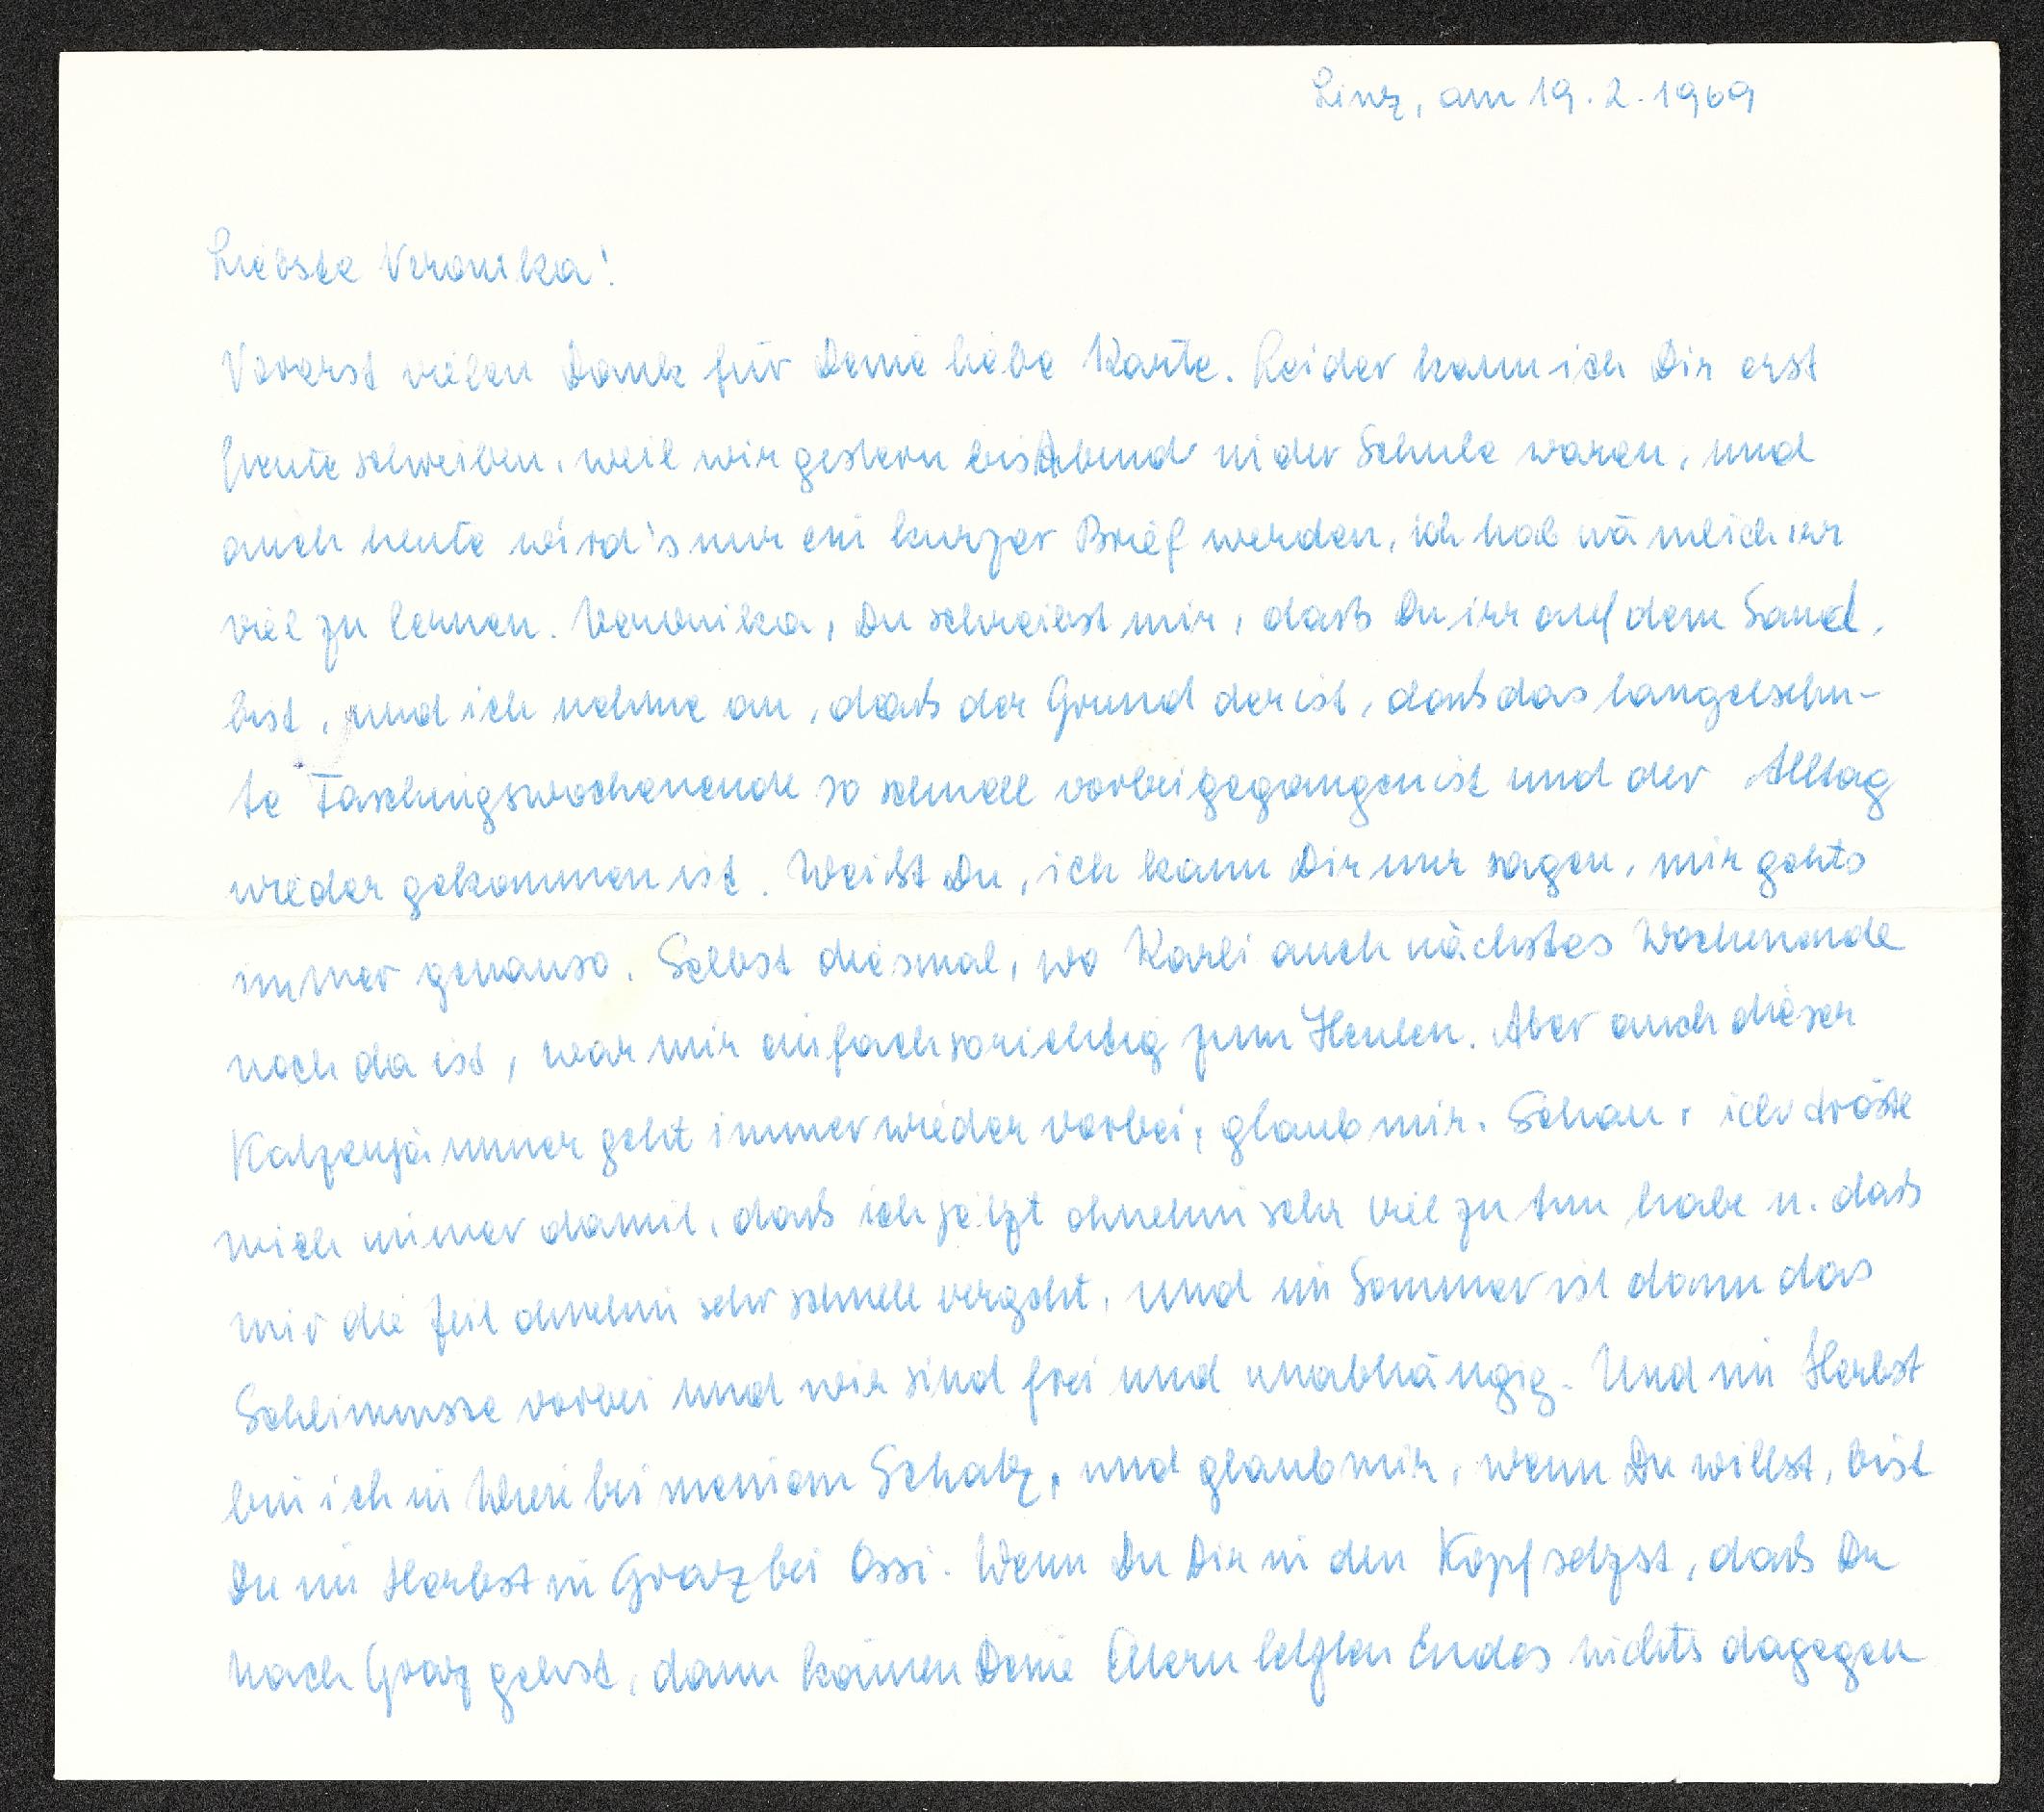 Linz, am 19.2.1969
Liebste Veronika!
Vorerst vielen Dank für Deine liebe Karte. Leider kann ich Dir erst
heute schreiben, weil wir gestern bis Abend in der Schule waren, und
auch heute wird's nur ein kurzer Brief werden, ich hab nämlich irr
viel zu lernen. Veronika, Du schreibst mir, daß Du irr auf dem Sand,
bist, und ich nehme an, daß der Grund der ist, daß das langersehn-
te Faschingswochenende so schnell vorbeigegangen ist und der Alltag
wieder gekommen ist. Weißt Du, ich kann Dir nur sagen, mir gehts
immer genauso. Selbst diesmal, wo Karli auch nächstes Wochenende
noch da ist, war mir einfach so richtig zum Heulen. Aber auch dieser
Katzenjammer geht immer wieder vorbei, glaub mir. Schau, ich tröste
mich immer damit, daß ich jetzt ohnehin sehr viel zu tun habe u. daß
mir die Zeit ohnehin sehr schnell vergeht, und im Sommer ist dann das
Schlimmste vorbei und wir sind frei und unabhängig. Und im Herbst
bin ich in Wien bei meinem Schatz, und glaub mir, wenn Du willst, bist
Du im Herbst in Graz bei Ossi. Wenn Du Dir in den Kopf setzst, daß Du
nach Graz gehst, dann können Deine Eltern letzten Endes nichts dagegen